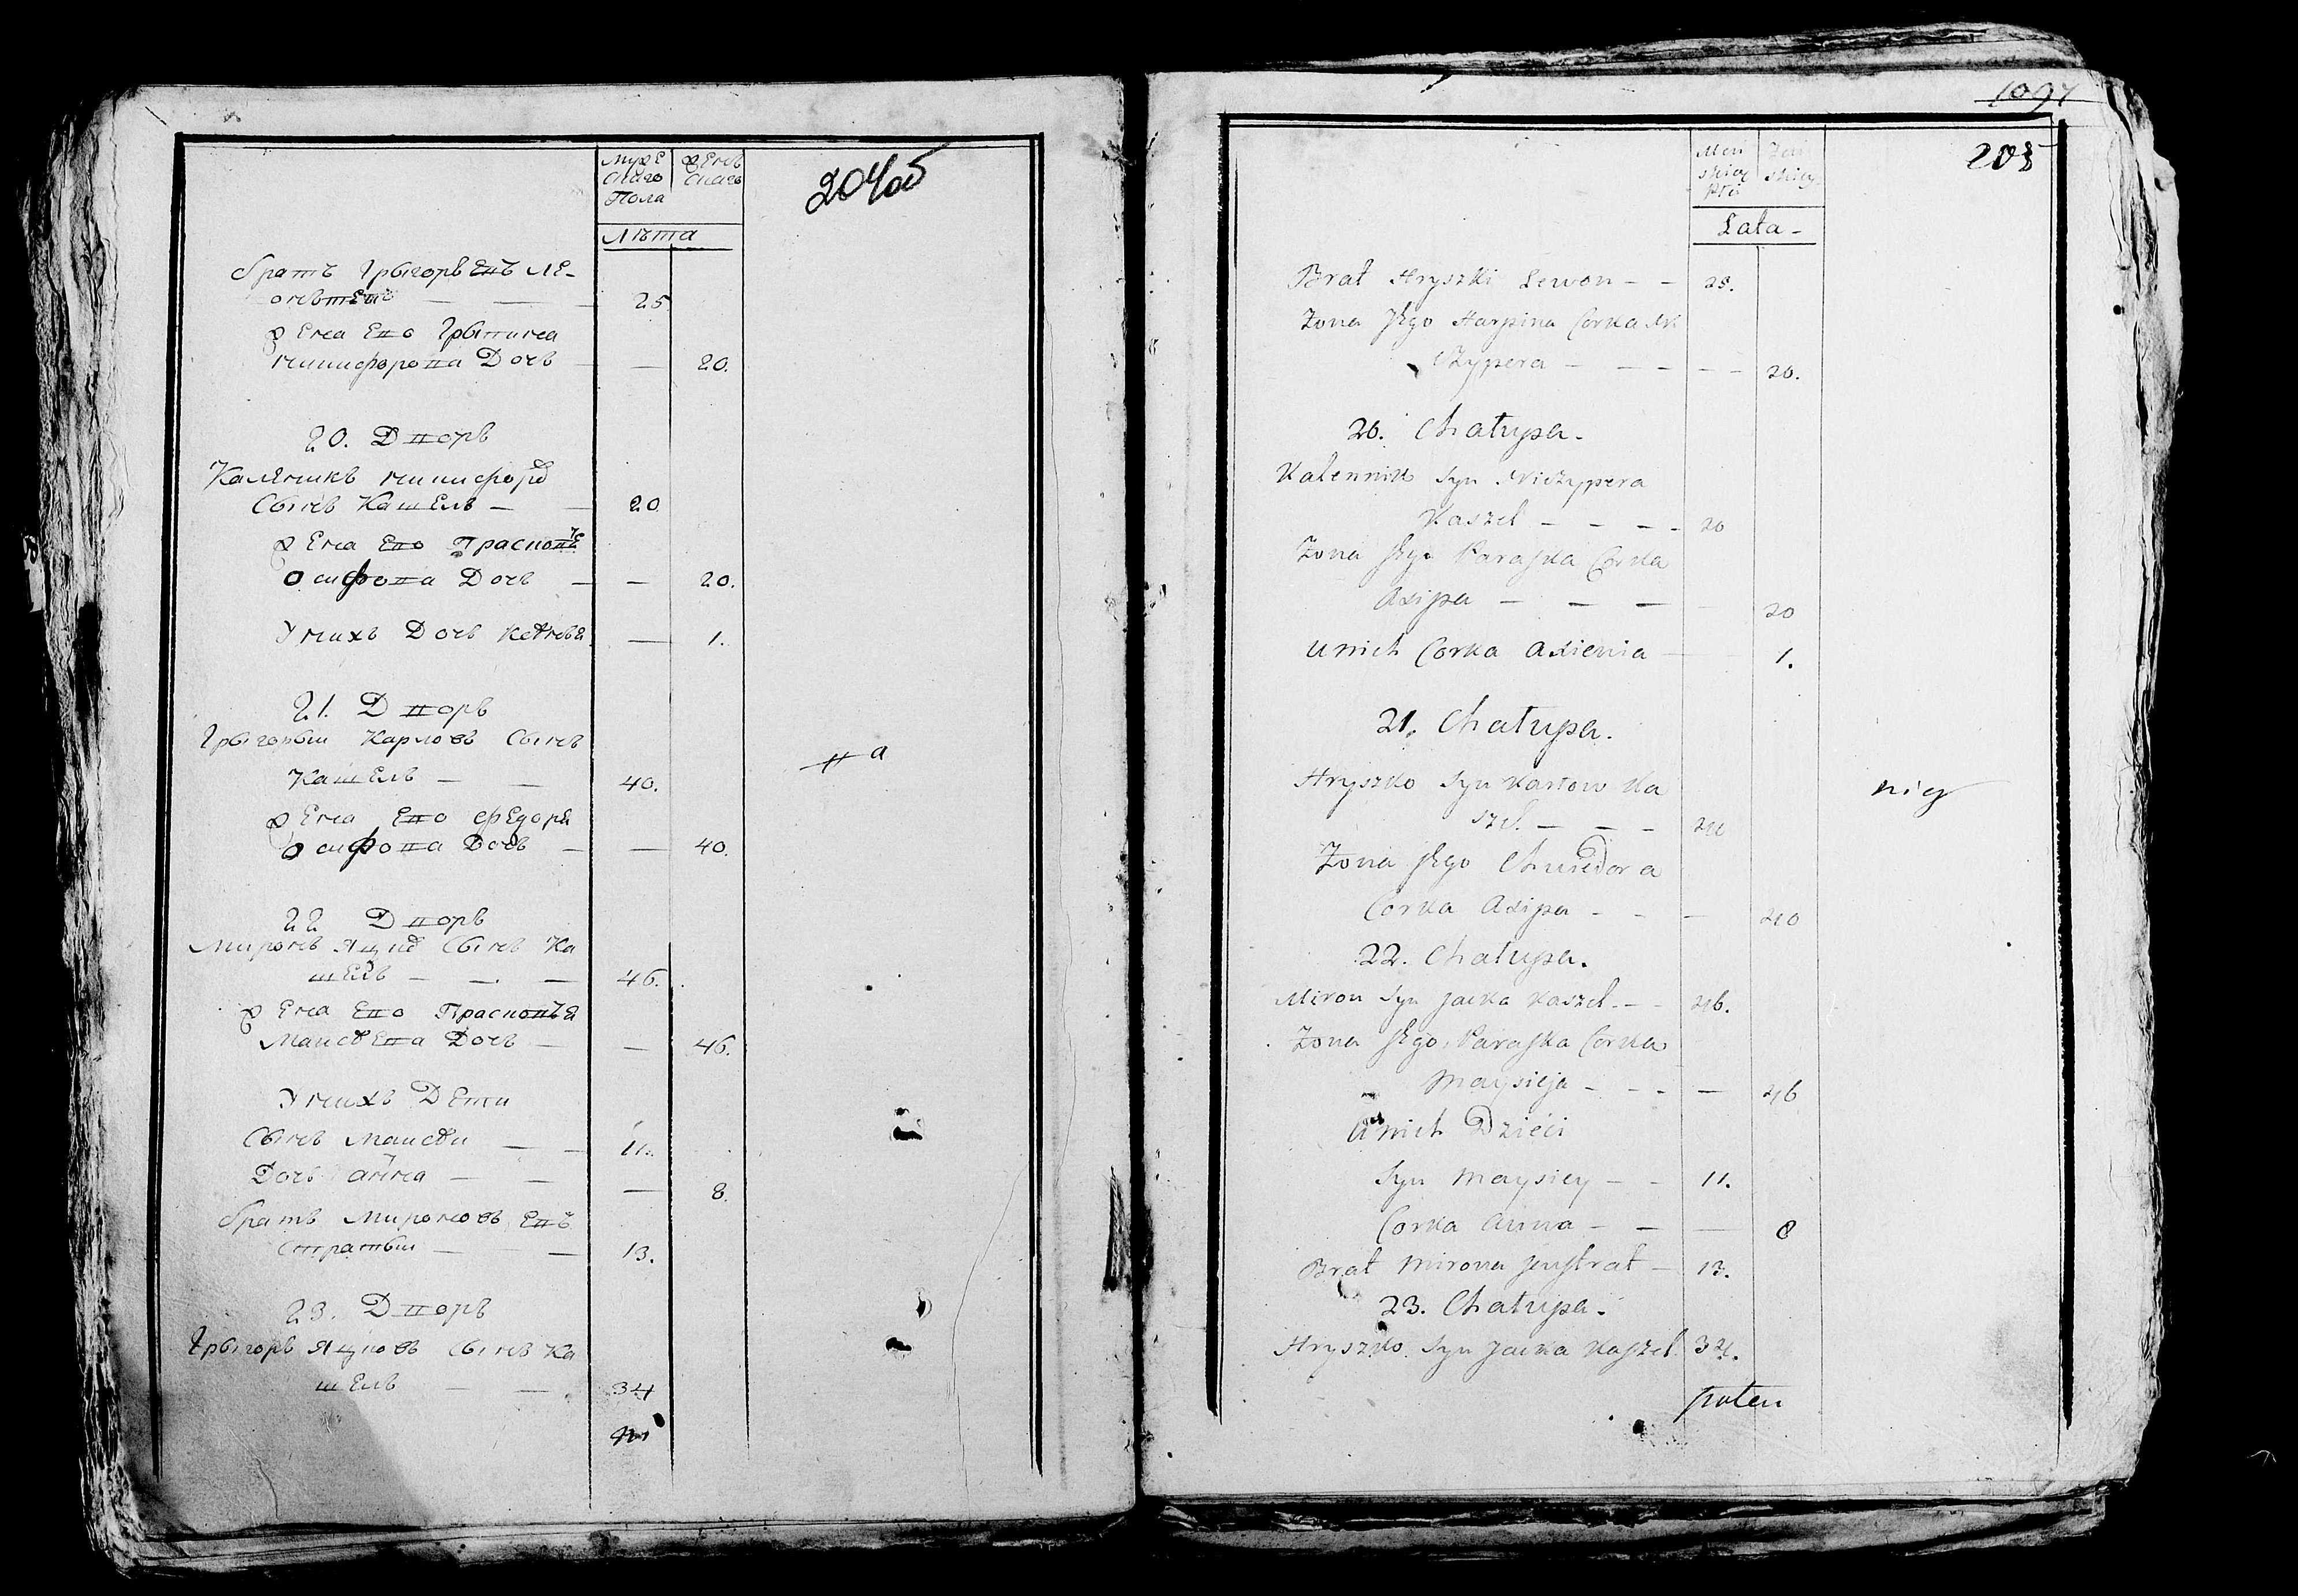 Муже Женс
скаго скаго
Пола
204об
Лѣта
братъ Грыгоръевъ Ле-
онътеи — — — 25
Жена Ево Грыпина
Нипифорова Дочь — — 20.
20. Дворъ
Каленикъ Нипифоро
Сынъ Кашель — — 20
Жена Ево Прасковъе
Осифова Дочь — — 20.
Унихъ Дочь — 1.
21. Дворъ
Грыгорыи Карловъ Сынъ
Кашель — — 40.
на
Жена Ево Федоря
Осифова Дочь — — 40.
22 Дворъ
Миронъ Яцков Сынъ Ка
шель — — — 46.
Жена Ево Прасковъя
Мансеева Дочь — — 46.
Унихъ Дети
Сынъ — — 11.
Дочь анна — — — 8.
братъ Мироновъ Евъ
Стратыи — — 13.
23. Дворъ
Грыгоръ Яцковъ Сынъ Ка
шель — — 34
1097
Men Zen
skiey skiey
płci
205
Lata -
Brat Hryszki Lewon - - 25.
Zona Jego Harpina Corka Ni
czypera - - - - - 20.
20. Chałupa.
Kalennik Syn Niczypera
Kaszel - - - - 20
Zona Jego Paraska Corka
Asipa - - - - 20
u nich Corka Axienia - - 1.
21. Chałupa.
Hryszko Syn Karłow Ka
szel. - - - 40
niey
Zona Jego Chwiedora
Corka Asipa - - - 40
22. Chałupa.
Miron Syn Jacka Kaszel. - - 46.
Zona Jego Paraska Corka
Maysieja - - - - 46
U nich Dzieci
Syn Maysiey - - 11.
Corka Anna - - - 8
Brat Mirona Jewstrat - 13.
23. Chałupa.
Hryszko Syn Jacka Kaszel 34.